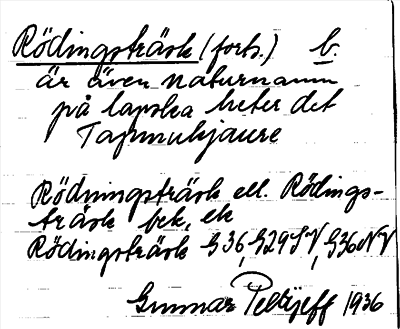 Rödingsträsk (forts.) b.
är även naturnamn
på lapska heter det
Rödningsträsk ell. Rödings-
träsk bek, ek
Rödingsträsk G36, G29SV, G36NV
Gunnar Pellijeff 1936